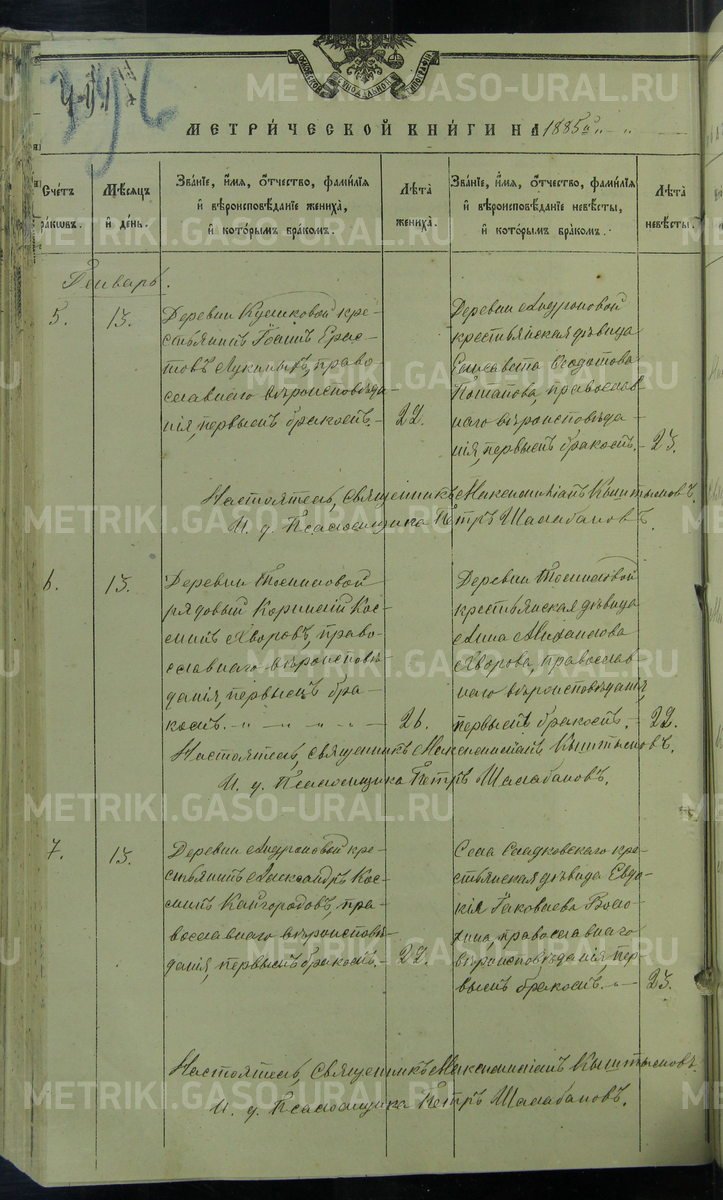 МЕТРИ́ЧЕСКОЙ КНИ́ГИ НА 1885й
Сче́тъ бракωвъ.
Мѣ́сяцъ и де́нь.
Зва́нїе, и́мя, о́тчество, фами́лїя и вѣроисповѣ́данїе жениха́, и кото́рымъ бра́комъ.
Лѣ́та жениха̀.
Зва́нїе, и́мя, о́тчество, фами́лїя и вѣроисповѣ́данїе невѣ́сты, и кото́рымъ бра́комъ.
Лѣ́та невѣ́сты.
Генварь.
5.
13.
Деревни Кушковой кре-
стьянинъ Іоаннъ Ерас-
товъ Лукиныхъ, право-
славнаго вѣроисповѣда-
нія, первымъ бракомъ. —
22.
Деревни Андроновой
крестьянская дѣвица
Елисавета Ѳеодотова
Потапова, православ-
наго вѣроисповѣда-
нія, первымъ бракомъ. —
23.
Настоятель, священникъ Максимиліанъ Кыштымовъ.
И. д. Псаломщика Петръ Шалабановъ.
6.
13.
Деревни Томиловой
рядовый Корнилій Кос-
минъ Хворовъ, право-
славнаго вѣроисповѣ-
данія, первымъ бра-
комъ. —
26.
Деревни Томиловой
крестьянская дѣвица
Анна Михаилова
Хворова, православ-
наго вѣроисповѣданія,
первымъ бракомъ. —
22.
Настоятель, священникъ Максимиліанъ Кыштымовъ.
И. д. Псаломщика Петръ Шалабановъ.
7.
13.
Деревни Андроновой кре-
стьянинъ Александръ Кос-
минъ Кайгородовъ, пра-
вославнаго вѣроисповѣ-
данія, первымъ бракомъ. —
22.
Села Сладковскаго кре-
стьянская дѣвица Евдо-
кія Іаковлева Воло-
хина, православнаго
вѣроисповѣданія, пер-
вымъ бракомъ. —
23.
Настоятель, Священникъ Максимиліанъ Кыштымовъ.
И. д. Псаломщика Петръ Шалабановъ.
METRIKI.GASO-URAL.RU